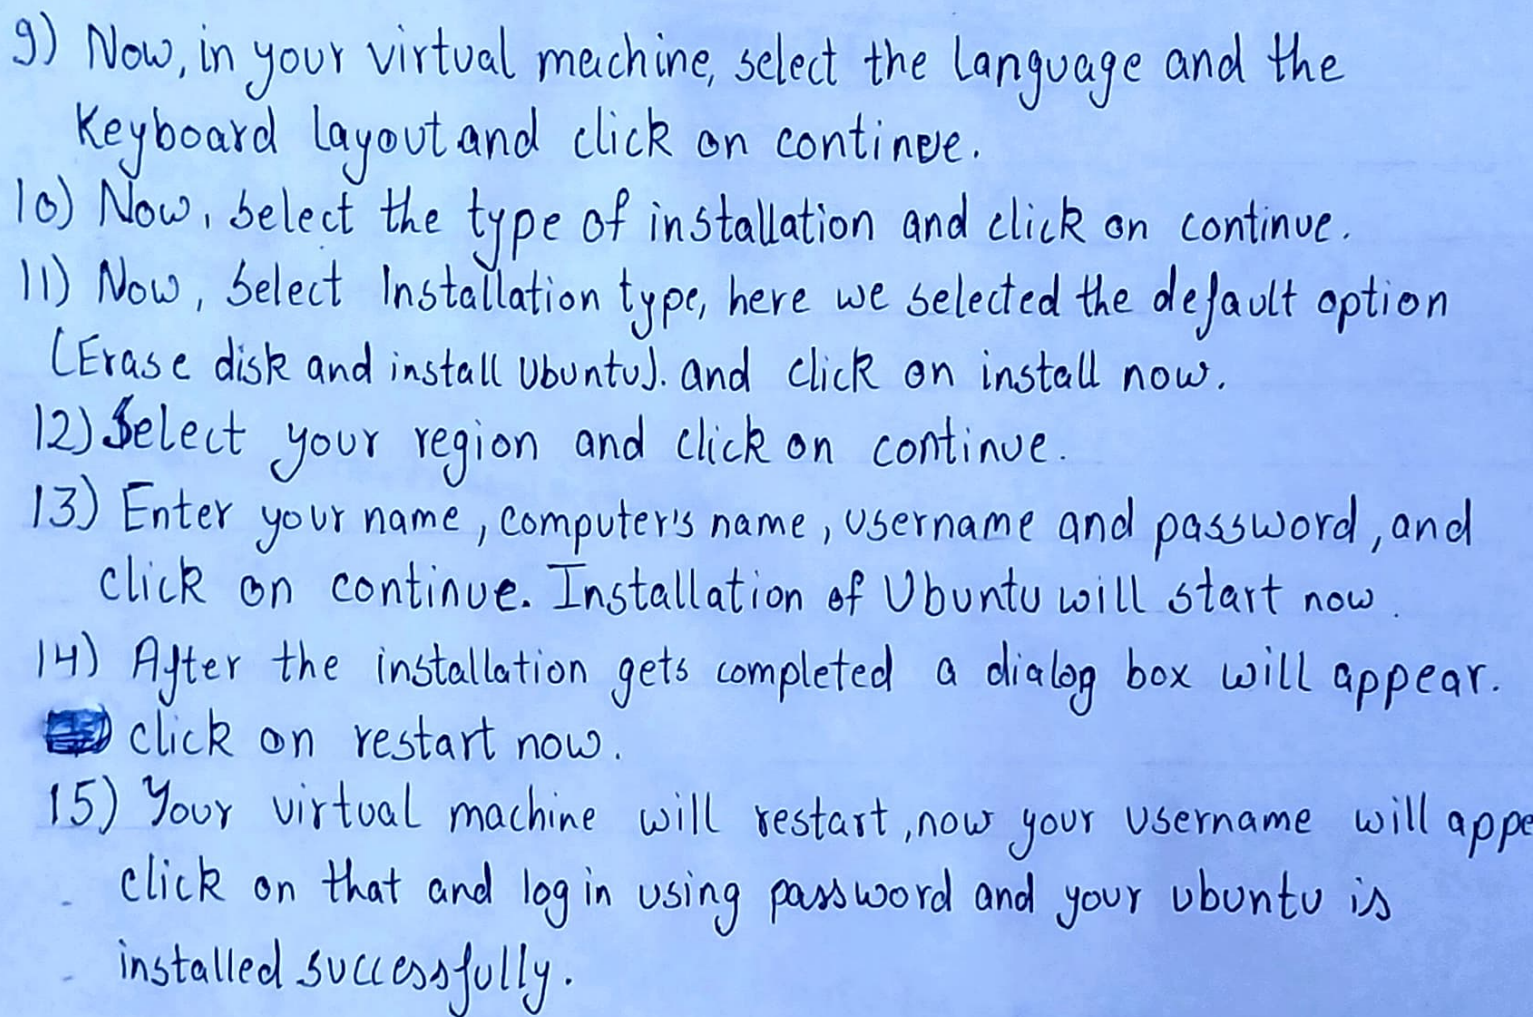 9) Now, in your virtual machine, select the language and the
Keyboard layout and click on continue.
10) Now, select the type of installation and click on continue.
11) Now, select Installation type, here we selected the default option
(Erase disk and install Ubuntu). and click on install now.
12) Select your region and click on continue.
13) Enter your name, computer's name, username and password, and
click on continue. Installation of Ubuntu will start now.
14) After the installation gets completed a dialog box will appear.
click on restart now.
15) Your virtual machine will restart, now your username will appe
click on that and log in using password and your ubuntu is
installed successfully.